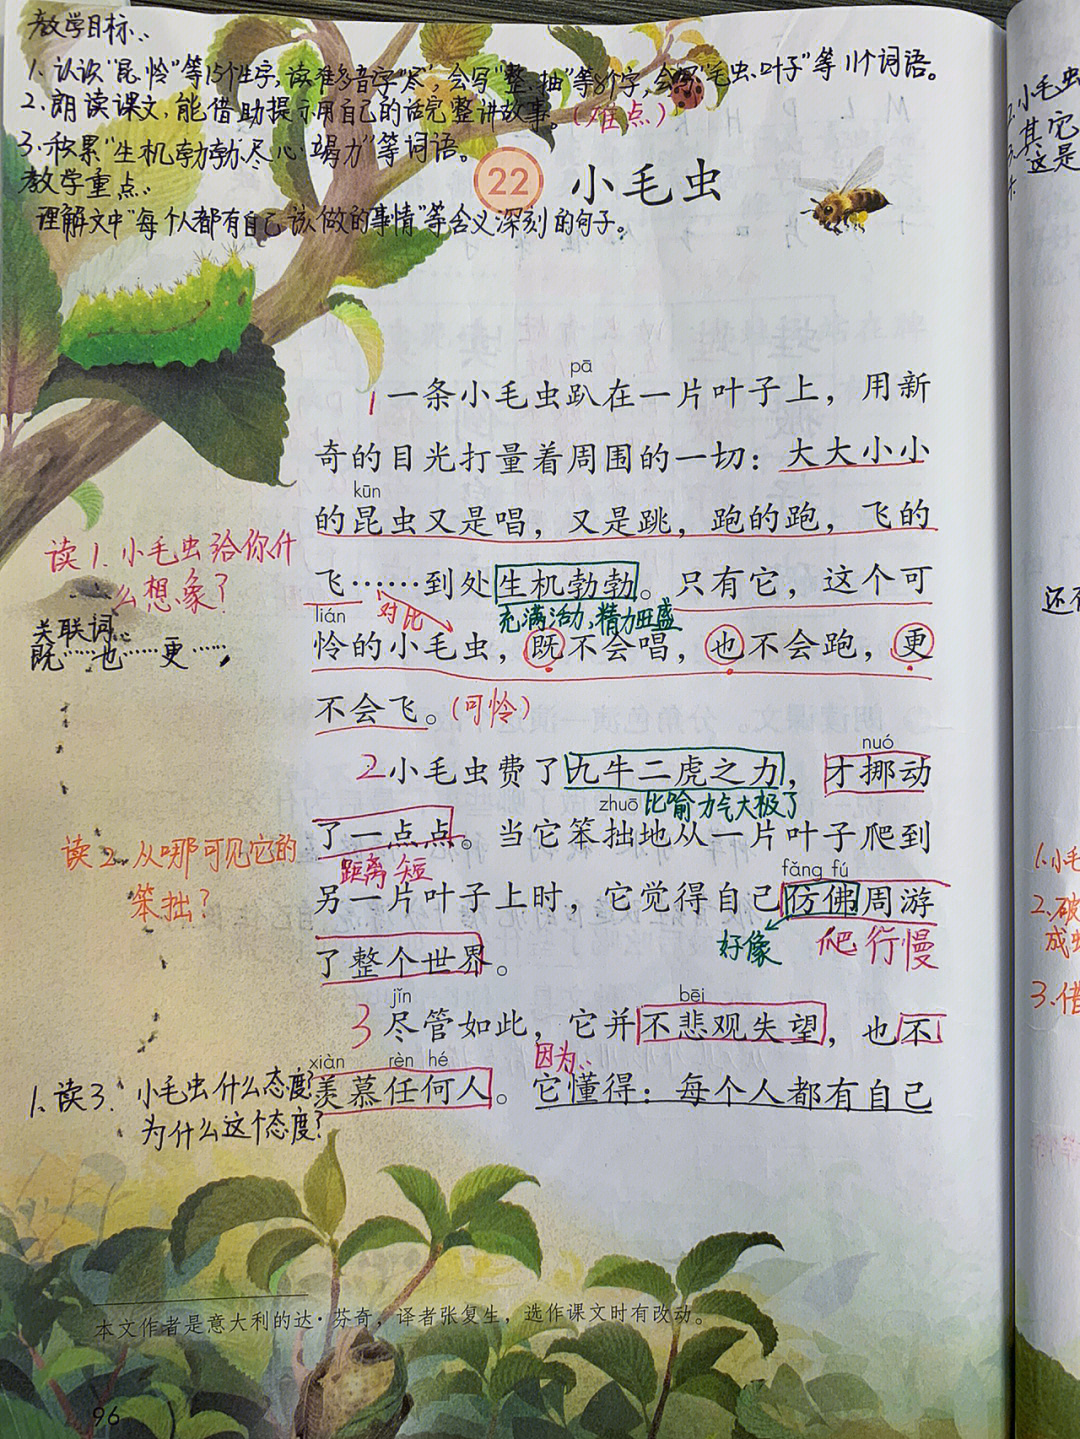 教学目标：
1. 认识“昆、怜”等15个生字，读准多音字“尽”，会写“整、抽”等8个字，会写“毛虫、叶子”等11个词语。
2. 朗读课文，能借助提示用自己的话完整讲故事。（难点）
3. 积累“生机勃勃、尽心竭力”等词语。
教学重点：
理解文中“每个人都有自己该做的事情”等含义深刻的句子。
22 小毛虫
pā
1 一条小毛虫趴在一片叶子上，用新
奇的目光打量着周围的一切：大大小小
kūn
的昆虫又是唱，又是跳，跑的跑，飞的
读1. 小毛虫给你什
么想象？
飞……到处生机勃勃。只有它，这个可
lián
对比
充满活力，精力旺盛
关联词：
既……也……更……
怜的小毛虫，既不会唱，也不会跑，更
不会飞。（可怜）
nuó
2 小毛虫费了九牛二虎之力，才挪动
zhuō
比喻力气大极了
了一点点。当它笨拙地从一片叶子爬到
距离短
读2. 从哪可见它的
笨拙？
fǎng fú
另一片叶子上时，它觉得自己仿佛周游
好像
爬行慢
了整个世界。
jǐn bēi
3 尽管如此，它并不悲观失望，也不
因为：
xiàn rèn hé
羡慕任何人。它懂得：每个人都有自己
1. 读3. 小毛虫什么态度？
为什么这个态度？
本文作者是意大利的达·芬奇，译者张复生，选作课文时有改动。
96
2. 小毛虫
其它
这是
还有
1. 小毛
2. 破
成虫
3. 借